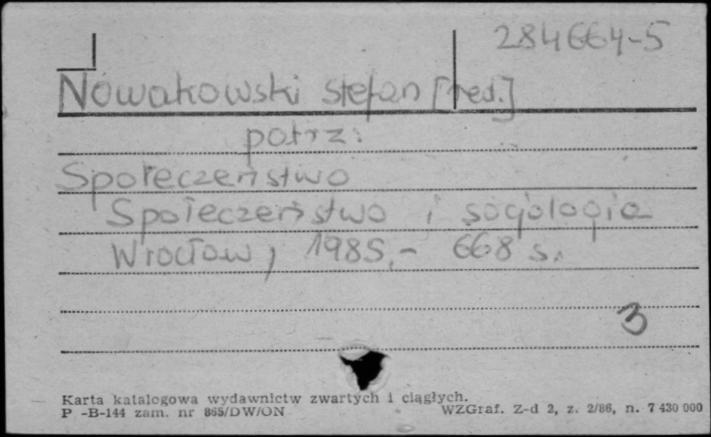 284664-5
Nowakowski Stefan [red.]
patrz:
Społeczeństwo
Społeczeństwo i socjologia
Wrocław, 1985.- 668 s.
3
Karta katalogowa wydawnictw zwartych i ciągłych.
P -B-144 zam. nr 865/DW/ON WZGraf. Z-d 2, z. 2/86, n. 7 430 000